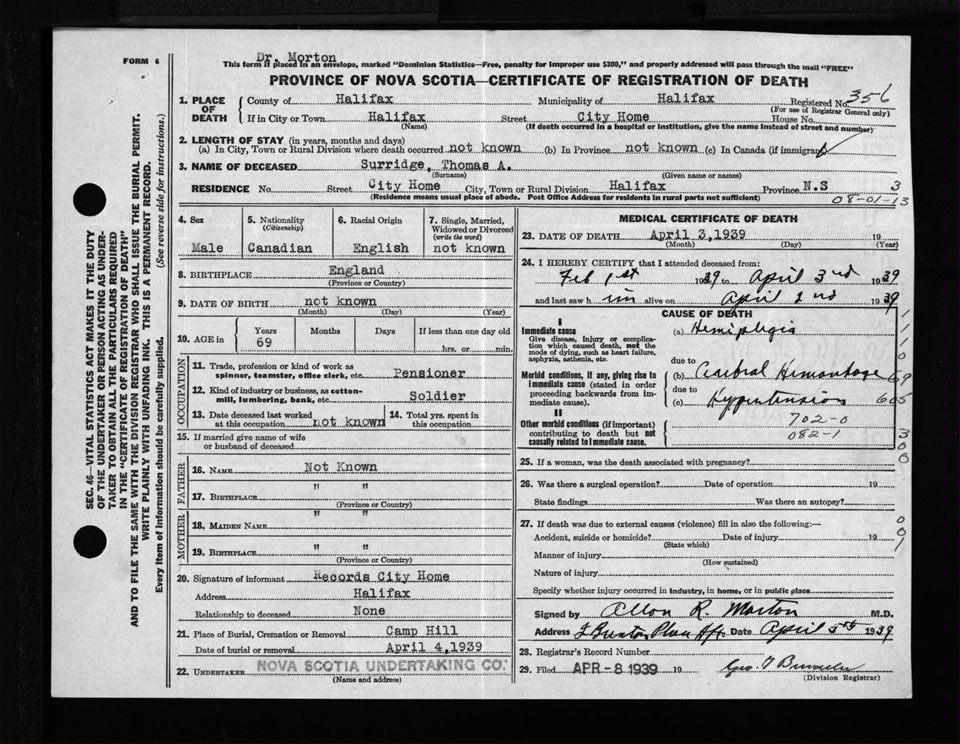 FORM 6
Dr. Morton
This form if placed in an envelope, marked "Dominion Statistics—Free, penalty for improper use $300," and properly addressed will pass through the mail "FREE"
PROVINCE OF NOVA SCOTIA—CERTIFICATE OF REGISTRATION OF DEATH
SEC. 46—VITAL STATISTICS ACT MAKES IT THE DUTY
OF THE UNDERTAKER OR PERSON ACTING AS UNDER-
TAKER TO OBTAIN ALL THE PARTICULARS REQUIRED
IN THE "CERTIFICATE OF REGISTRATION OF DEATH"
AND TO FILE THE SAME WITH THE DIVISION REGISTRAR WHO SHALL ISSUE THE BURIAL PERMIT.
WRITE PLAINLY WITH UNFADING INK. THIS IS A PERMANENT RECORD.
Every item of information should be carefully supplied. (See reverse side for instructions.)
1. PLACE OF DEATH County of Halifax Municipality of Halifax Registered No. 356
(For use of Registrar General only)
If in City or Town Halifax Street City Home House No.
(Name) (If death occurred in a hospital or institution, give the name instead of street and number)
2. LENGTH OF STAY (in years, months and days)
(a) In City, Town or Rural Division where death occurred not known (b) In Province not known (c) In Canada (if immigrant)
3. NAME OF DECEASED Surridge, Thomas A.
(Surname) (Given name or names)
RESIDENCE No. Street City Home City, Town or Rural Division Halifax Province N.S 3
(Residence means usual place of abode. Post Office Address for residents in rural parts not sufficient) 08-01-13
4. Sex Male
5. Nationality (Citizenship) Canadian
6. Racial Origin English
7. Single, Married, Widowed or Divorced (write the word) not known
8. BIRTHPLACE England
(Province or Country)
9. DATE OF BIRTH not known
(Month) (Day) (Year)
10. AGE in Years 69 Months Days If less than one day old
hrs. or min.
OCCUPATION
11. Trade, profession or kind of work as
spinner, teamster, office clerk, etc. Pensioner
12. Kind of industry or business, as cotton-
mill, lumbering, bank, etc. Soldier
13. Date deceased last worked
at this occupation not known
14. Total yrs. spent in
this occupation
15. If married give name of wife
or husband of deceased
FATHER
16. NAME Not Known
17. BIRTHPLACE " "
(Province or Country)
MOTHER
18. MAIDEN NAME " "
19. BIRTHPLACE " "
(Province or Country)
20. Signature of informant Records City Home
Address Halifax
Relationship to deceased None
21. Place of Burial, Cremation or Removal Camp Hill
Date of burial or removal April 4,1939
22. UNDERTAKER NOVA SCOTIA UNDERTAKING CO.
(Name and address)
MEDICAL CERTIFICATE OF DEATH
23. DATE OF DEATH April 3,1939 19
(Month) (Day) (Year)
24. I HEREBY CERTIFY that I attended deceased from:
Feb 1st 1939 to April 3rd 1939
and last saw h im alive on April 2nd 1939
CAUSE OF DEATH
I
Immediate cause (a) Hemiplegia
Give disease, injury or complica-
tion which caused death, not the
mode of dying, such as heart failure,
asphyxia, asthenia, etc.
due to
Morbid conditions, if any, giving rise to
immediate cause (stated in order
proceeding backwards from im-
mediate cause).
(b) Cerebral Hemorrhage
due to
(c) Hypertension
II
Other morbid conditions (if important)
contributing to death but not
causally related to immediate cause.
702-0
082-1
25. If a woman, was the death associated with pregnancy?
26. Was there a surgical operation? Date of operation 19
State findings Was there an autopsy?
27. If death was due to external causes (violence) fill in also the following:—
Accident, suicide or homicide? Date of injury 19
(State which)
Manner of injury
(How sustained)
Nature of injury
Specify whether injury occurred in industry, in home, or in public place
Signed by Allan R. Morton M.D.
Address Date April 5th 1939
28. Registrar's Record Number
29. Filed APR - 8 1939 19
(Division Registrar)